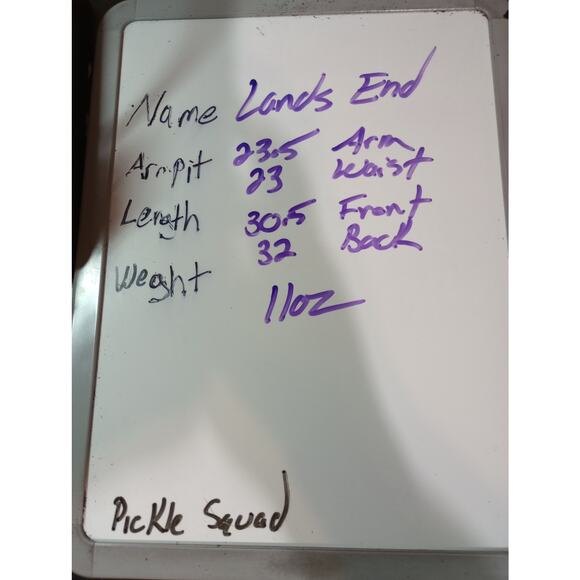 Name Lands End
Armpit 23.5 Arm
23 Waist
Length 30.5 Front
32 Back
Weight 11oz
Pickle Squad